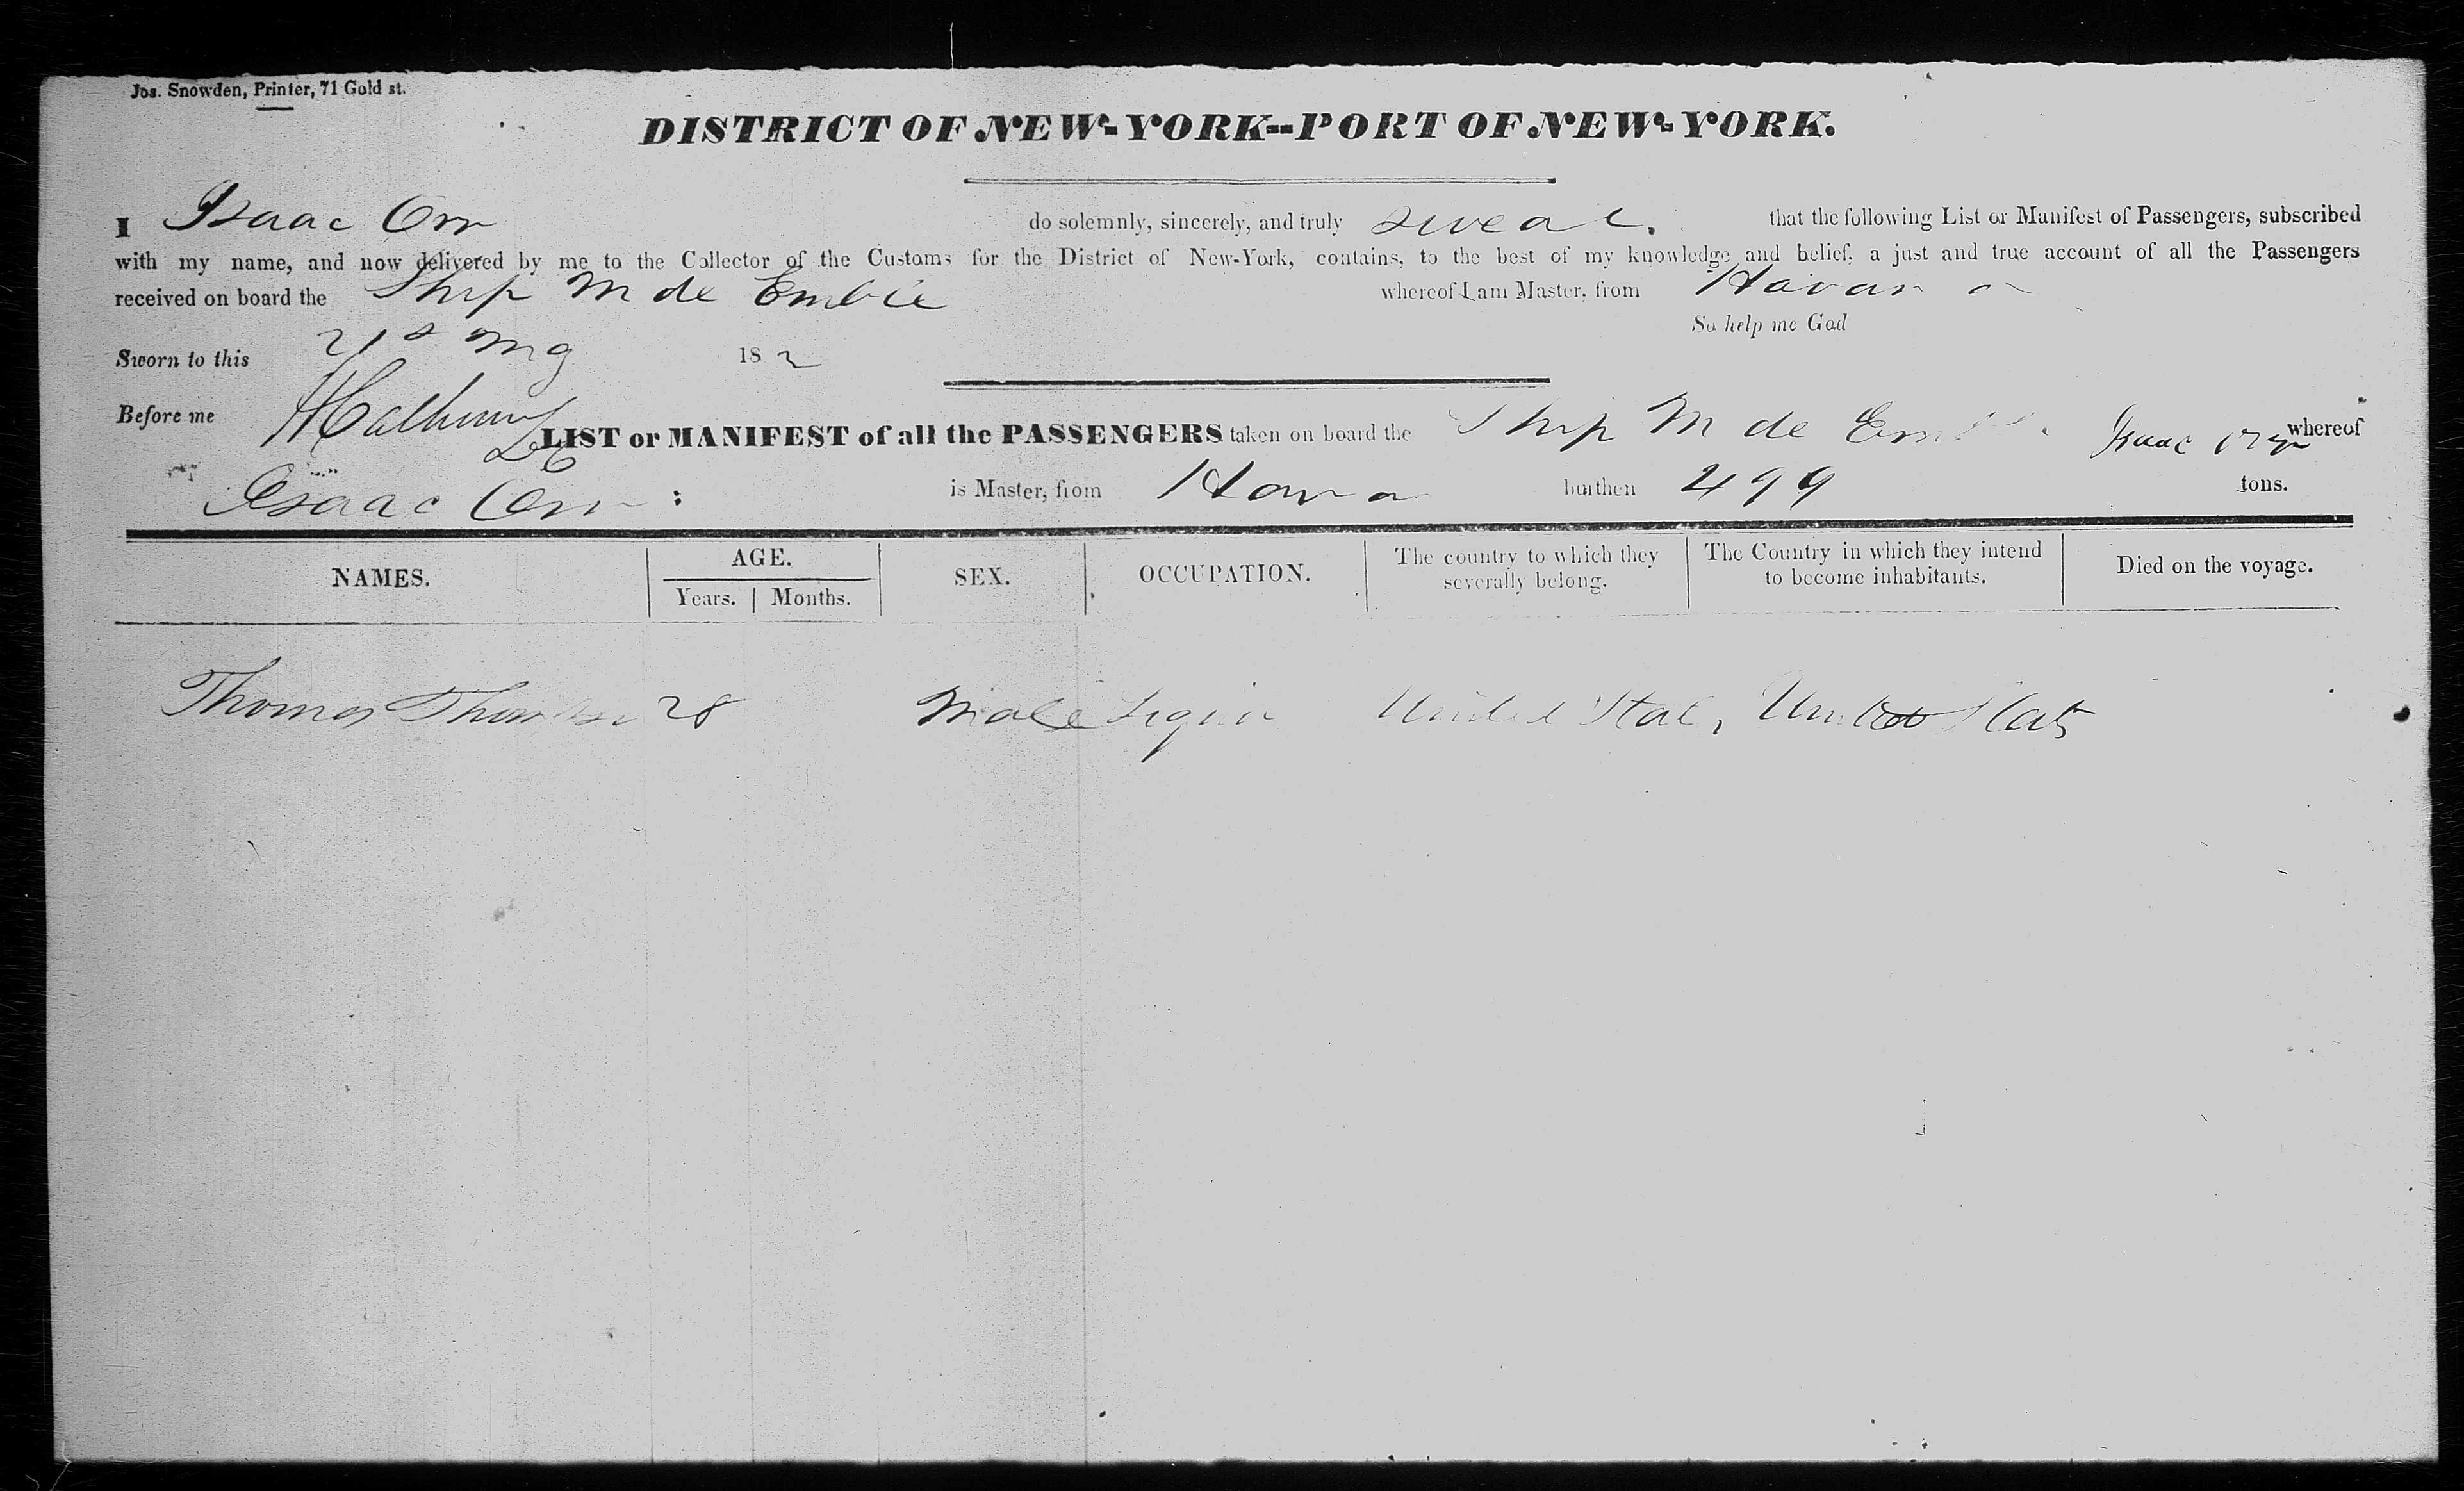 Jos. Snowden, Printer, 71 Gold st.
DISTRICT OF NEW-YORK--PORT OF NEW-YORK.
I Isaac Orr do solemnly, sincerely, and truly swear. that the following List or Manifest of Passengers, subscribed
with my name, and now delivered by me to the Collector of the Customs for the District of New-York, contains, to the best of my knowledge and belief, a just and true account of all the Passengers
received on board the Ship M de Embil whereof I am Master, from Havana
So help me God
Sworn to this 21s 18 2
Before me
LIST or MANIFEST of all the PASSENGERS taken on board the Ship M de whereof
Isaac Orr
Isaac Orr : is Master, from burthen 499 tons.
NAMES. AGE. SEX. OCCUPATION. The country to which they severally belong. The Country in which they intend to become inhabitants. Died on the voyage.
Years. Months.
Thomas 28 Male United States United States